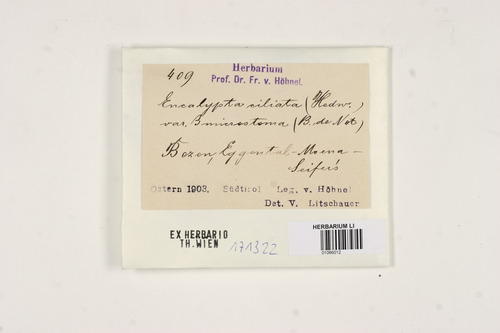 Herbarium
Prof. Dr. Fr. v. Höhnel.
409
Encalypta ciliata (Hedw.)
var. β microstoma (B. de Not)
Bozen, Eggental - Moena -
Seifers
Ostern 1903. Südtirol Leg. v. Höhnel
Det. V. Litschauer
EX HERBARIO
TH. WIEN
171322
HERBARIUM LI
01066012